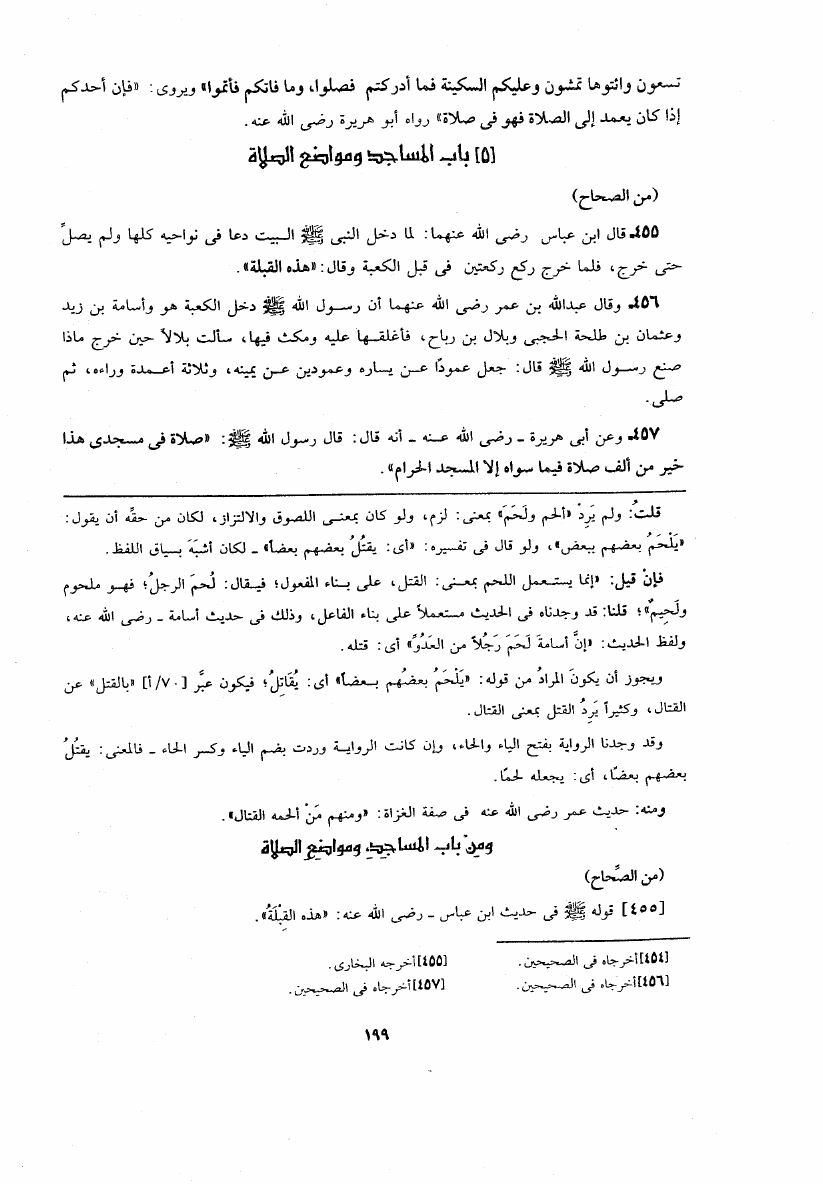 تسعون وائتوها تمشون وعليكم السكينة فما أدركتم فصلوا، وما فاتكم فأتموا» ويروى: «فإن أحدكم
إذا كان يعمد إلى الصلاة فهو فى صلاة» رواه أبو هريرة رضى الله عنه.
[٥] باب المساجد ومواضع الصلاة
(من الصحاح)
٤٥٥ـ قال ابن عباس رضى الله عنهما: لما دخل النبى ﷺ البيت دعا فى نواحيه كلها ولم يصلِّ
حتى خرج، فلما خرج ركع ركعتين فى قبل الكعبة وقال: «هذه القبلة».
٤٥٦ـ وقال عبدالله بن عمر رضى الله عنهما أن رسول الله ﷺ دخل الكعبة هو وأسامة بن زيد
وعثمان بن طلحة الحجبى وبلال بن رباح، فأغلقها عليه ومكث فيها، سألت بلالاً حين خرج ماذا
صنع رسول الله ﷺ قال: جعل عمودًا عن يساره وعمودين عن يمينه، وثلاثة أعمدة وراءه، ثم
صلى.
٤٥٧ـ وعن أبى هريرة ـ رضى الله عنه ـ أنه قال: قال رسول الله ﷺ: «صلاة فى مسجدى هذا
خير من ألف صلاة فيما سواه إلا المسجد الحرام».
قلتُ: ولم يَرِدْ «ألحم ولَحَمَ» بمعنى: لزم، ولو كان بمعنى اللصوق والالتزاز، لكان من حقِّه أن يقول:
«يَلْحَمُ بعضهم ببعض»، ولو قال فى تفسيره: «أى: يقتُلُ بعضهم بعضاً» ـ لكان أشبَهَ بسياق اللفظ.
فإنْ قيل: «إنما يستعمل اللحم بمعنى: القتل، على بناء المفعول؛ فيقال: لُحمَ الرجلُ؛ فهو ملحوم
ولَحيمٌ»؛ قلنا: قد وجدناه فى الحديث مستعملاً على بناء الفاعل، وذلك فى حديث أسامة ـ رضى الله عنه،
ولفظ الحديث: «إنَّ أسامةَ لَحَمَ رَجُلاً من العَدُوِّ» أى: قتله.
ويجوز أن يكونَ المرادُ من قوله: «يَلْحَمُ بعضُهم بعضاً» أى: يُقَاتِلُ؛ فيكون عبَّر [٧٠/أ] «بالقتل» عن
القتال، وكثيراً يَرِدُ القتل بمعنى القتال.
وقد وجدنا الرواية بفتح الياء والحاء، وإن كانت الرواية وردت بضم الياء وكسر الحاء ـ فالمعنى: يقتُلُ
بعضهم بعضًا، أى: يجعله لحمًا.
ومنه: حديث عمر رضى الله عنه فى صفة الغزاة: «ومنهم مَنْ ألحمه القتال».
ومن باب المساجد، ومواضع الصلاة
(من الصِّحاح)
[٤٥٥] قوله ﷺ فى حديث ابن عباس ـ رضى الله عنه: «هذه القِبْلَةُ».
[٤٥٤] أخرجاه فى الصحيحين.
[٤٥٥] أخرجه البخارى.
[٤٥٦] أخرجاه فى الصحيحين.
[٤٥٧] أخرجاه فى الصحيحين.
١٩٩